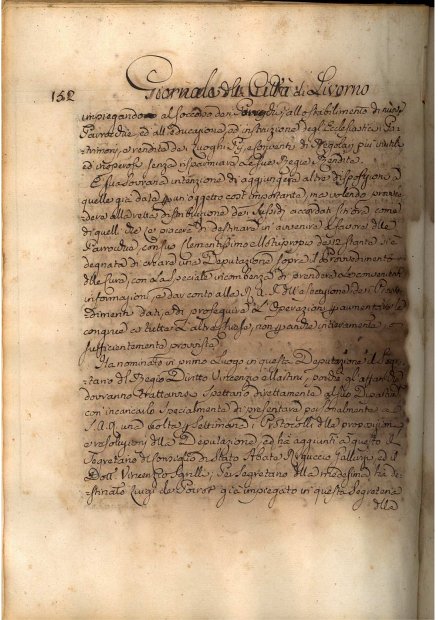 152 Giornale della Città di Livorno
impiegandone al soccorso dei Parrochi, allo stabilimento di nuove
Parrocchie, ed all'educazione, ed instruzione degl'Ecclesiastici i Pa-
trimoni, e rendite dei Luoghi Pij, e Conventi di Regolari più inutili
ed inoperosi senza risparmiare le sue Regie Rendite.
E sua Sovrana intenzione di aggiungere altre disposizioni a
quelle già date per un oggetto così importante, ma volendo provve-
dere alla retta distribuzione dei Sussidi accordati sin'ora, come
di quelli che le piacerà di destinare in avvenire a favore delle
Parrocchie, con suo clementissimo Motuproprio de' stante si è
degnata di creare una Deputazione sopra il Provvedimento
delle Cure, con la speciale incombenza di prendere le convenienti
informazioni, e dar conto alla R. A. S. dell'esecuzione dei Provve-
dimenti dati, e di proseguire le Operazioni per aumentare le
congrue a tutte l'altre Chiese, non per anche intieramente, e
sufficientemente provviste.
Ha nominato in primo luogo in questa Deputazione il Seg-
retario del Regio Diritto Vincenzio Martini, perchè gl'affari che
dovranno trattarsi spettano direttamente al suo Dipartim.
con incaricarlo specialmente di presentare personalmente a
S. A. R. una volta per Settimana i Protocolli delle proposizioni
e resoluzioni della Deputazione, ed ha aggiunti a questo il
Segretario del Consiglio di Stato Abate Galluzzi, ed il
Dott. Vincenzio Sgrilli. Per Segretario della medesima ha de-
stinato Luigi de Poirot già impiegato in questa Segreteria
della